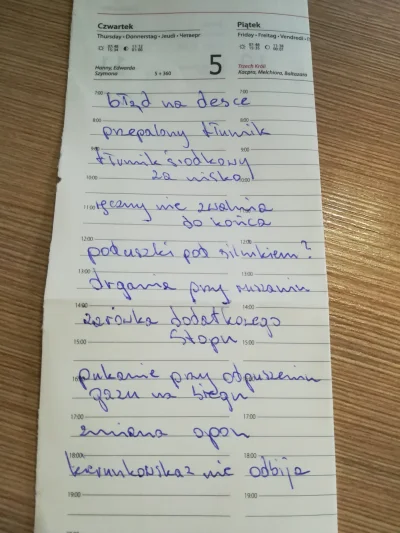 Czwartek
Piątek
Thursday • Donnerstag • Jeudi • Четверг
Friday • Freitag • Vendredi •
Hanny, Edwarda
Szymona
5 + 360
5
Trzech Króli
Kacpra, Melchiora, Baltazara
7:00
błąd na desce
8:00
przepalony tłumik
9:00
tłumik środkowy
10:00
za nisko
11:00
ręczny nie zwalnia
do końca
12:00
poduszki pod silnikiem?
13:00
drgania przy ruszaniu
14:00
żarówka dodatkowego
15:00
stopu
pukanie przy odpuszczeniu
gazu na biegu
17:00
zmiana opon
18:00
kierunkowskaz nie odbija
19:00
19:00